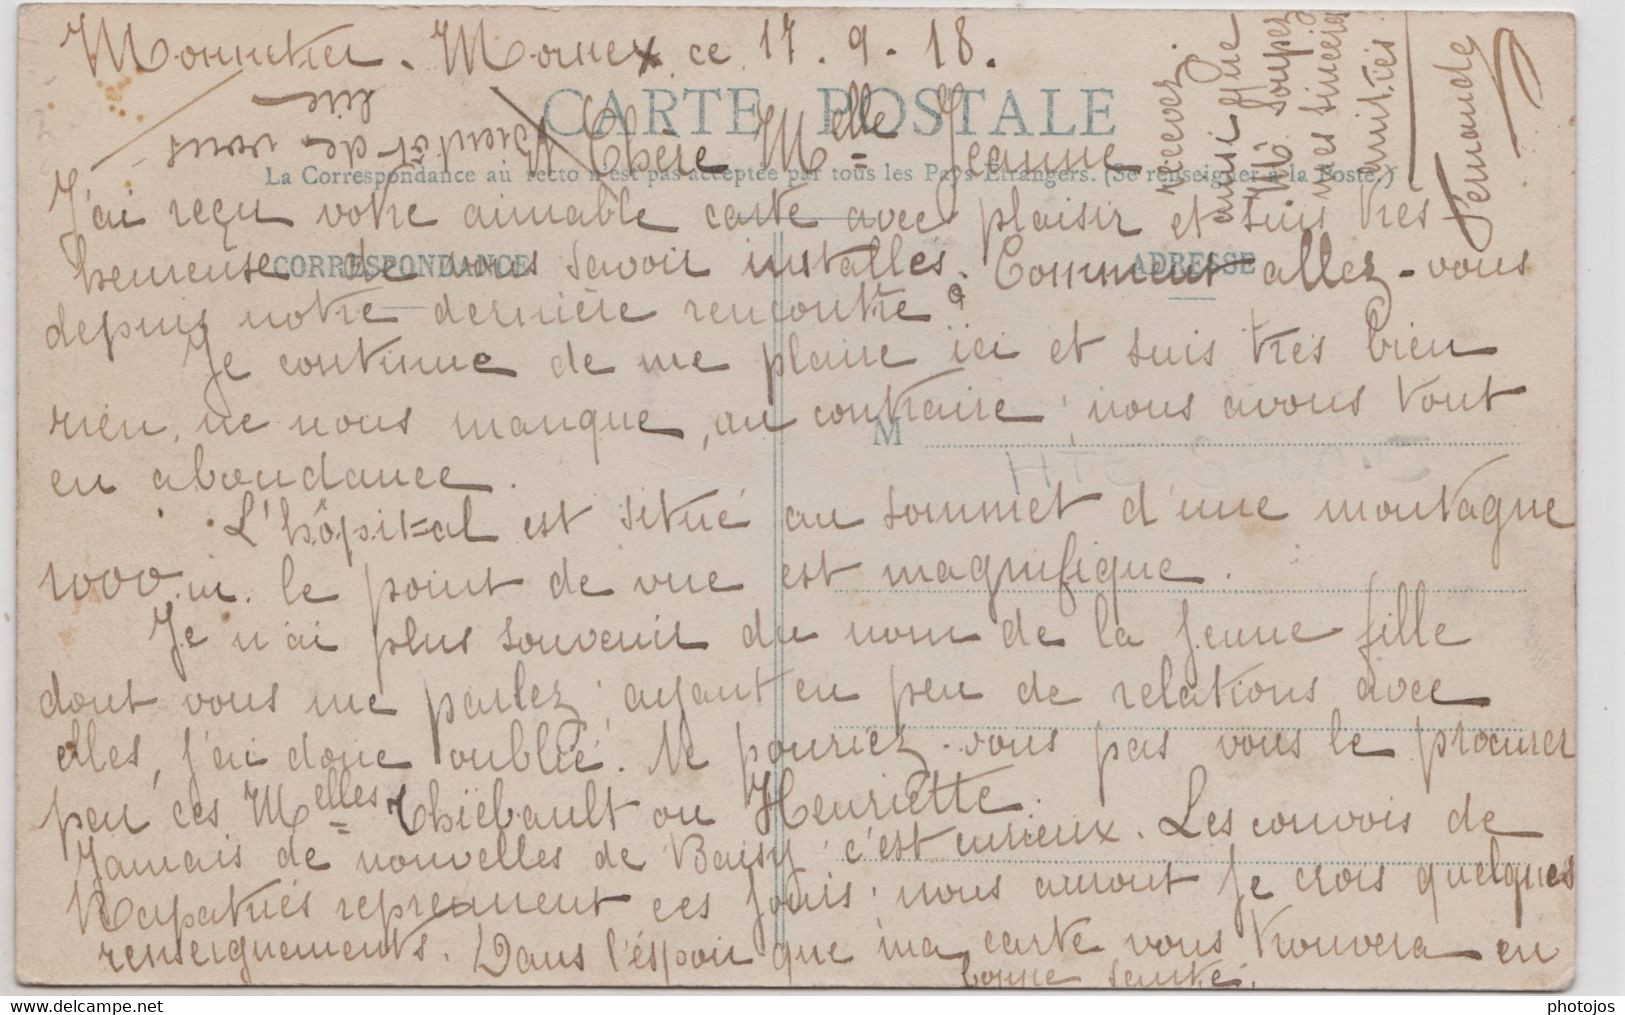 Monnetier - Mornex ce 17. 9. 18.
CARTE POSTALE
Chère Melle Jeanne
La Correspondance au recto n'est pas acceptée par tous les Pays Étrangers. (Se renseigner à la Poste.)
J'ai reçu votre aimable carte avec plaisir et suis très
CORRESPONDANCE
ADRESSE
heureuse de vous savoir installés. Comment allez-vous
depuis notre dernière rencontre?
Je continue de me plaire ici et suis très bien
rien, ne nous manque, au contraire, nous avons tout
M
en abondance.
HTE SAVOIE
L'hôpital est situé au sommet d'une montagne
1000.m. le point de vue est magnifique.
Je n'ai plus souvenir du nom de la jeune fille
dont vous me parlez, ayant eu peu de relations avec
elles, j'ai donc oublié. Ne pouriez-vous pas vous le procurer
par ces Melles Thiëbault ou Henriette.
Jamais de nouvelles de Baisy, c'est curieux. Les convois de
Rapatriés reprennent ces jours, nous auront je crois quelques
renseignements. Dans l'éspoir que ma carte vous trouvera en
bonne santé.
A bientôt de vous
lire
recevez
ainsi que
Mr Souper
mes sincères
amitiés
Fernande
photojos